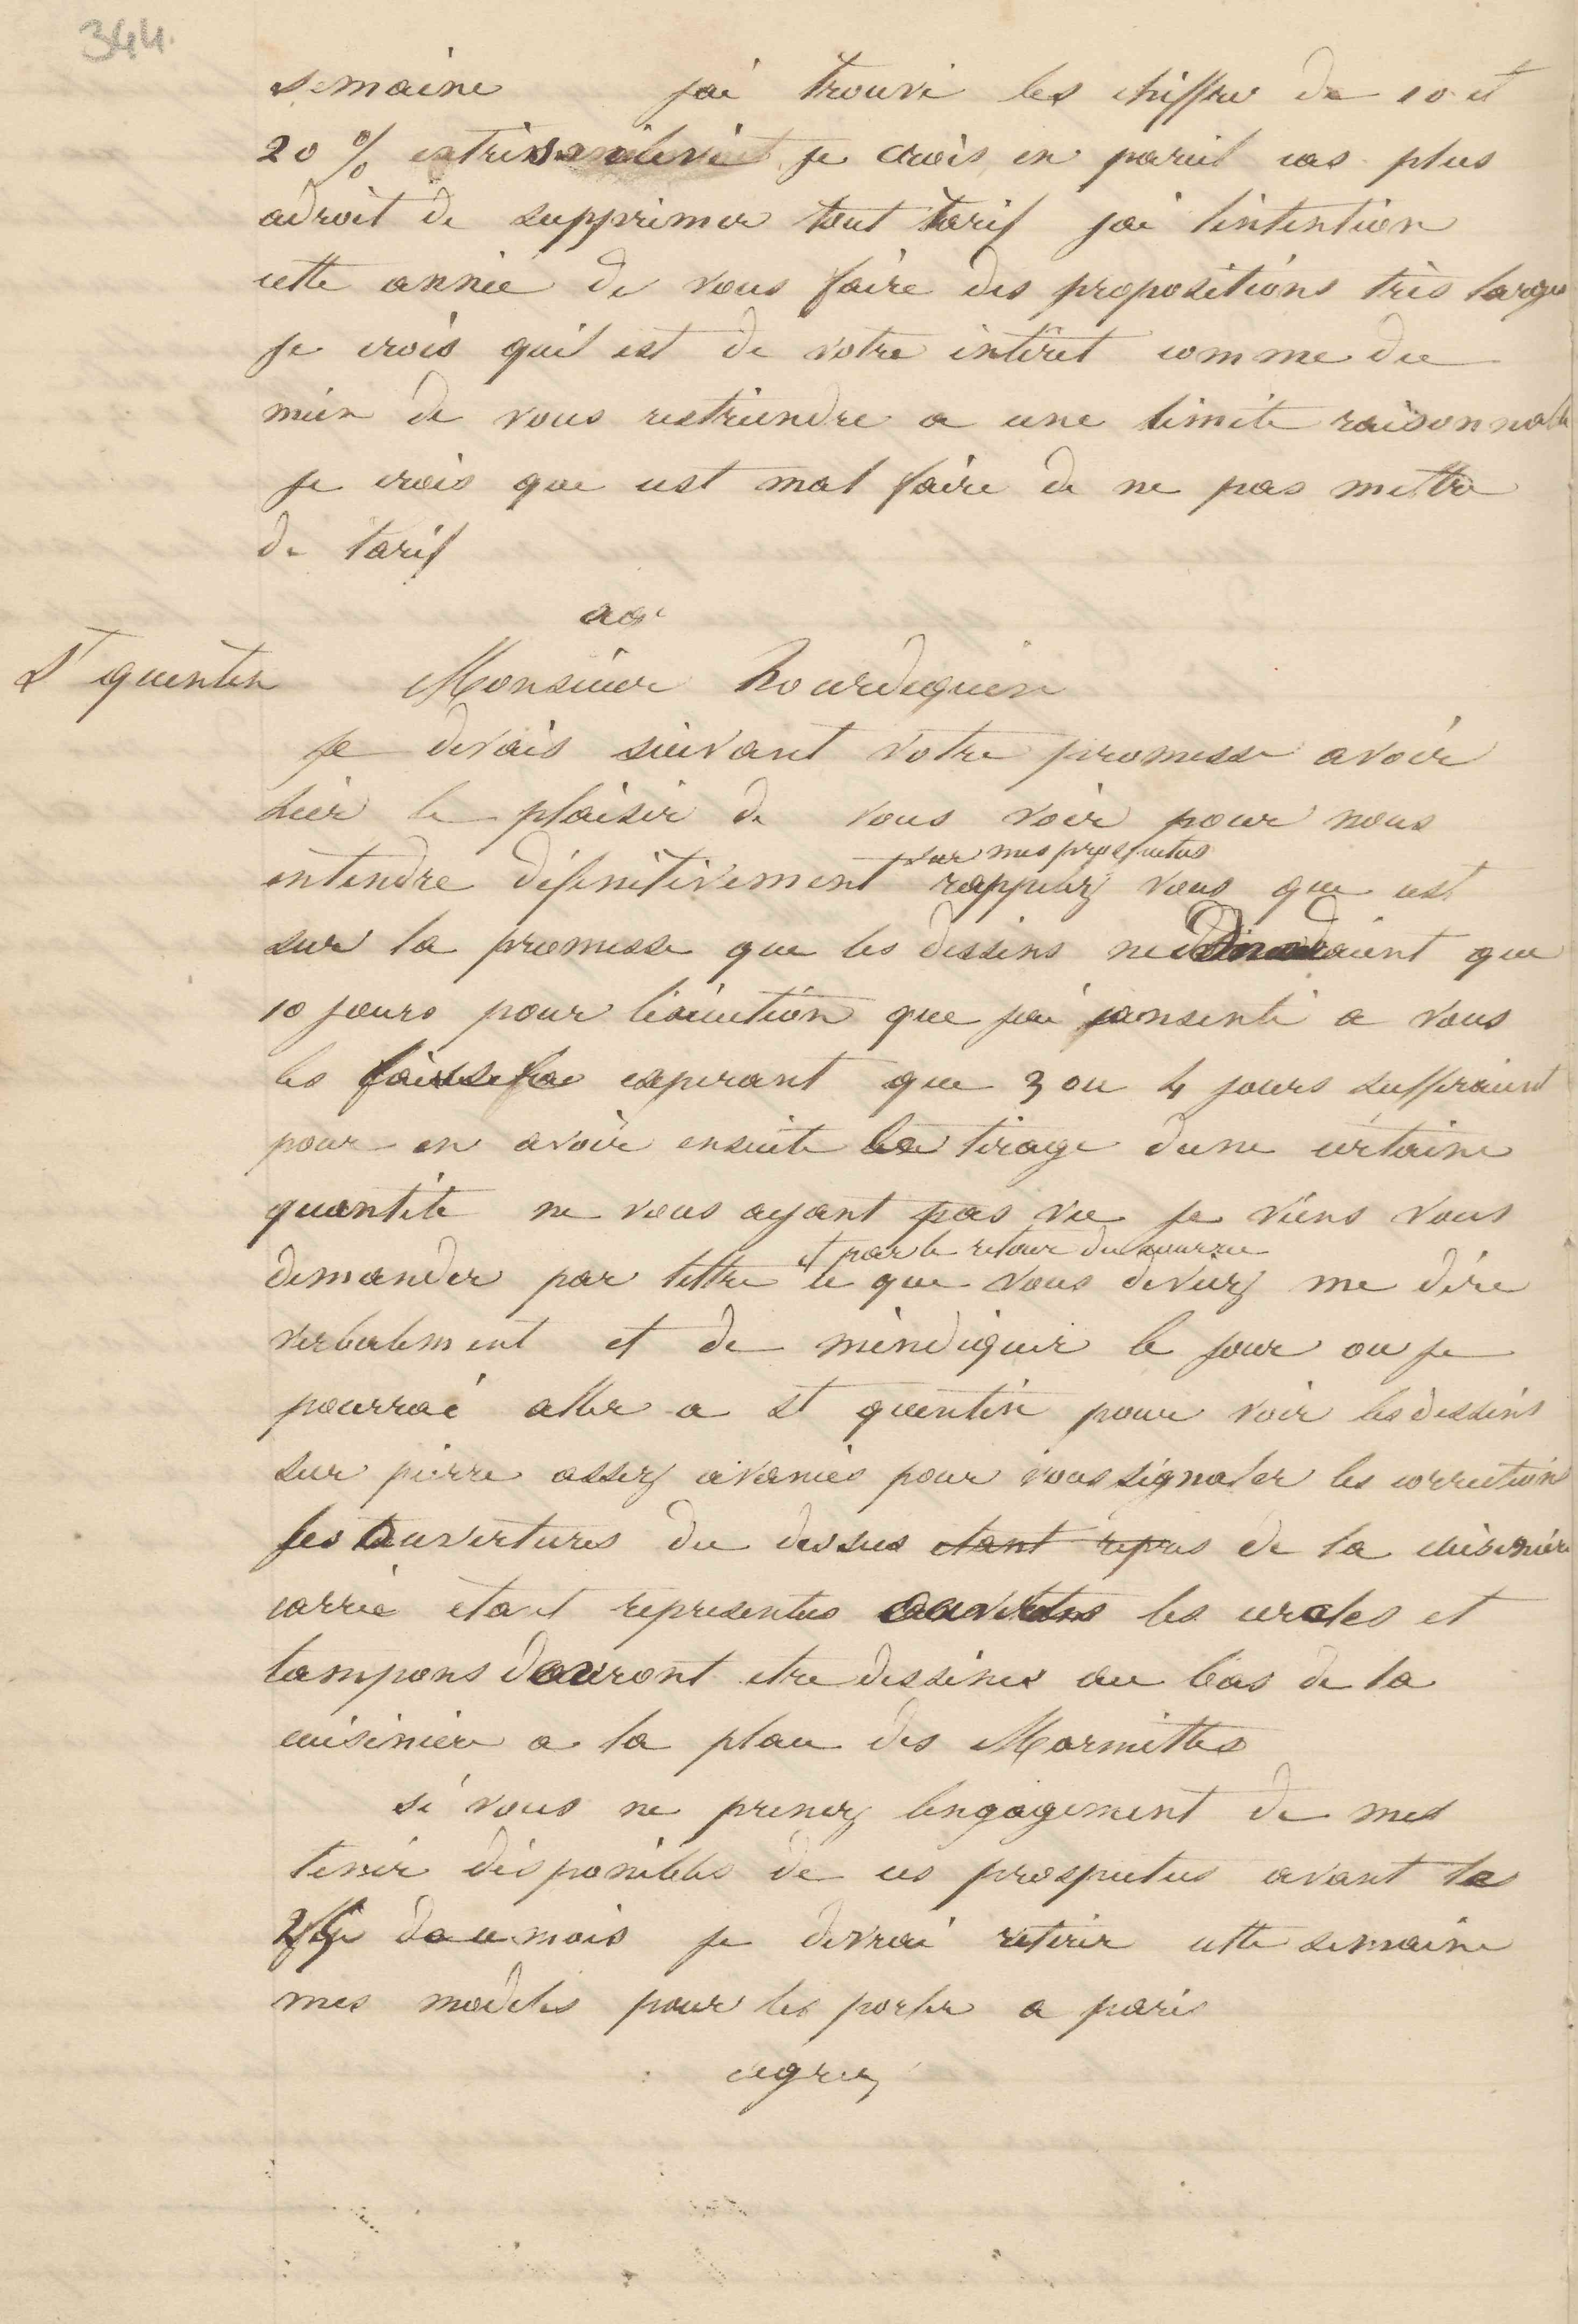 344.
semaine jai trouvé les chiffre de 10 et
20 % je crois en pareil cas plus
adroit de supprimer tout tarif jai lintention
cette année de vous faire des propositions très larges
je crois quil est de votre intéret comme du
mien de vous restreindre a une limite raisonnable
je crois que cest mal faire de ne pas mettre
de tarif
ag
St quentin Monsieur hourdequin
je devais suivant votre promesse avoir
hier le plaisir de vous voir pour nous
sur mes prospectus
entendre définitivement rappelez vous que cest
sur la promesse que les dessins ne que
10 jours pour lexécution que jai consenti a vous
les esperant que 3 ou 4 jours suffiraient
pour en avoir ensuite le tirage dune certaine
quantité ne vous ayant pas vu je viens vous
et par le retour du courrie
demander par lettre ce que vous deviez me dire
verbalement et de mindiquer le jour ou je
pourrai aller a st quentin pour voir les dessins
sur pierre assez avancés pour vous signaler les corrections
les ouvertures du dessus etant repres de la cuisinière
carrée étant representés ouvertes les cercles et
tampons devront etre dessinés au bas de la
cuisinière a la place des Marmittes
si vous ne prenez lengagement de mes
tenir disponibles de ces prospectus avant le
du mois je devrai retirer cette semaine
mes modeles pour les porter a paris
agréez